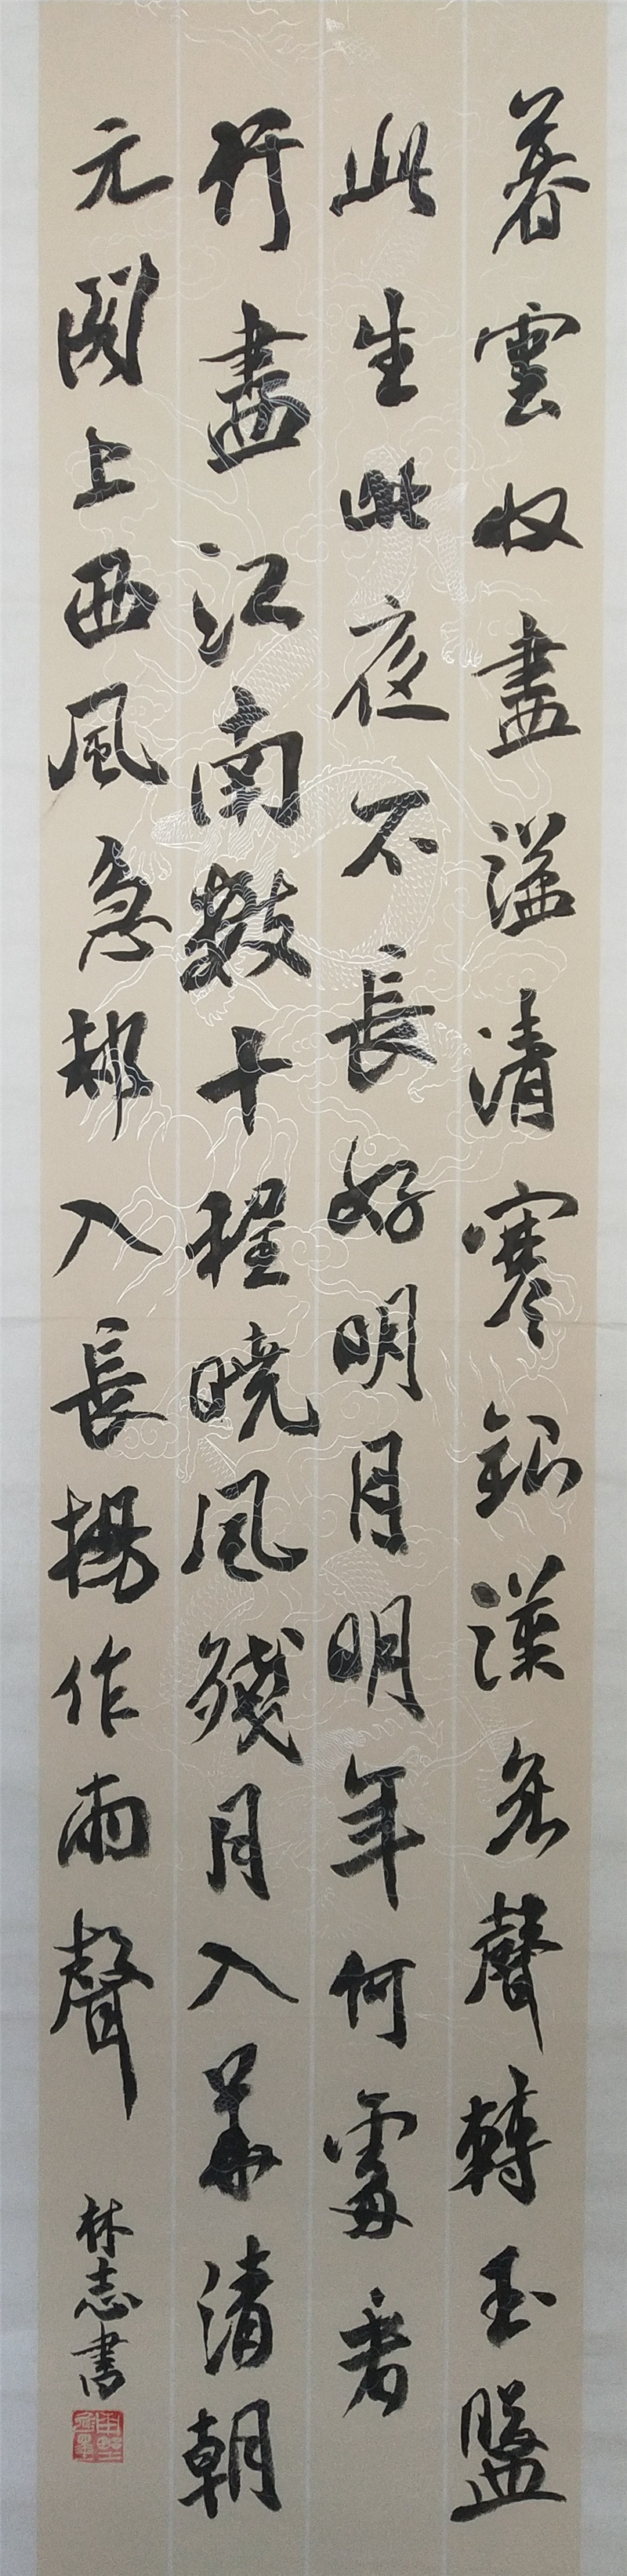 暮雲收盡溢清寒銀漢無聲轉玉盤
此生此夜不長好明月明年何處看
行盡江南數十程曉風殘月入華清朝
元閣上西風急都入長楊作雨聲
林志書